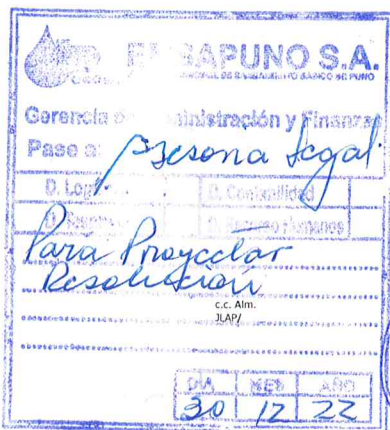 EMSAPUNO S.A.
MUNICIPAL DE SANEAMIENTO BÁSICO DE PUNO
Gerencia de Administración y Finanzas
Pase a: Asesoria Legal
D. Log
D. Contabilidad
D. Recurso Humanos
Para Proyectar
Resolución
c.c. Alm.
JLAP/
DIA MES AÑO
30 12 22